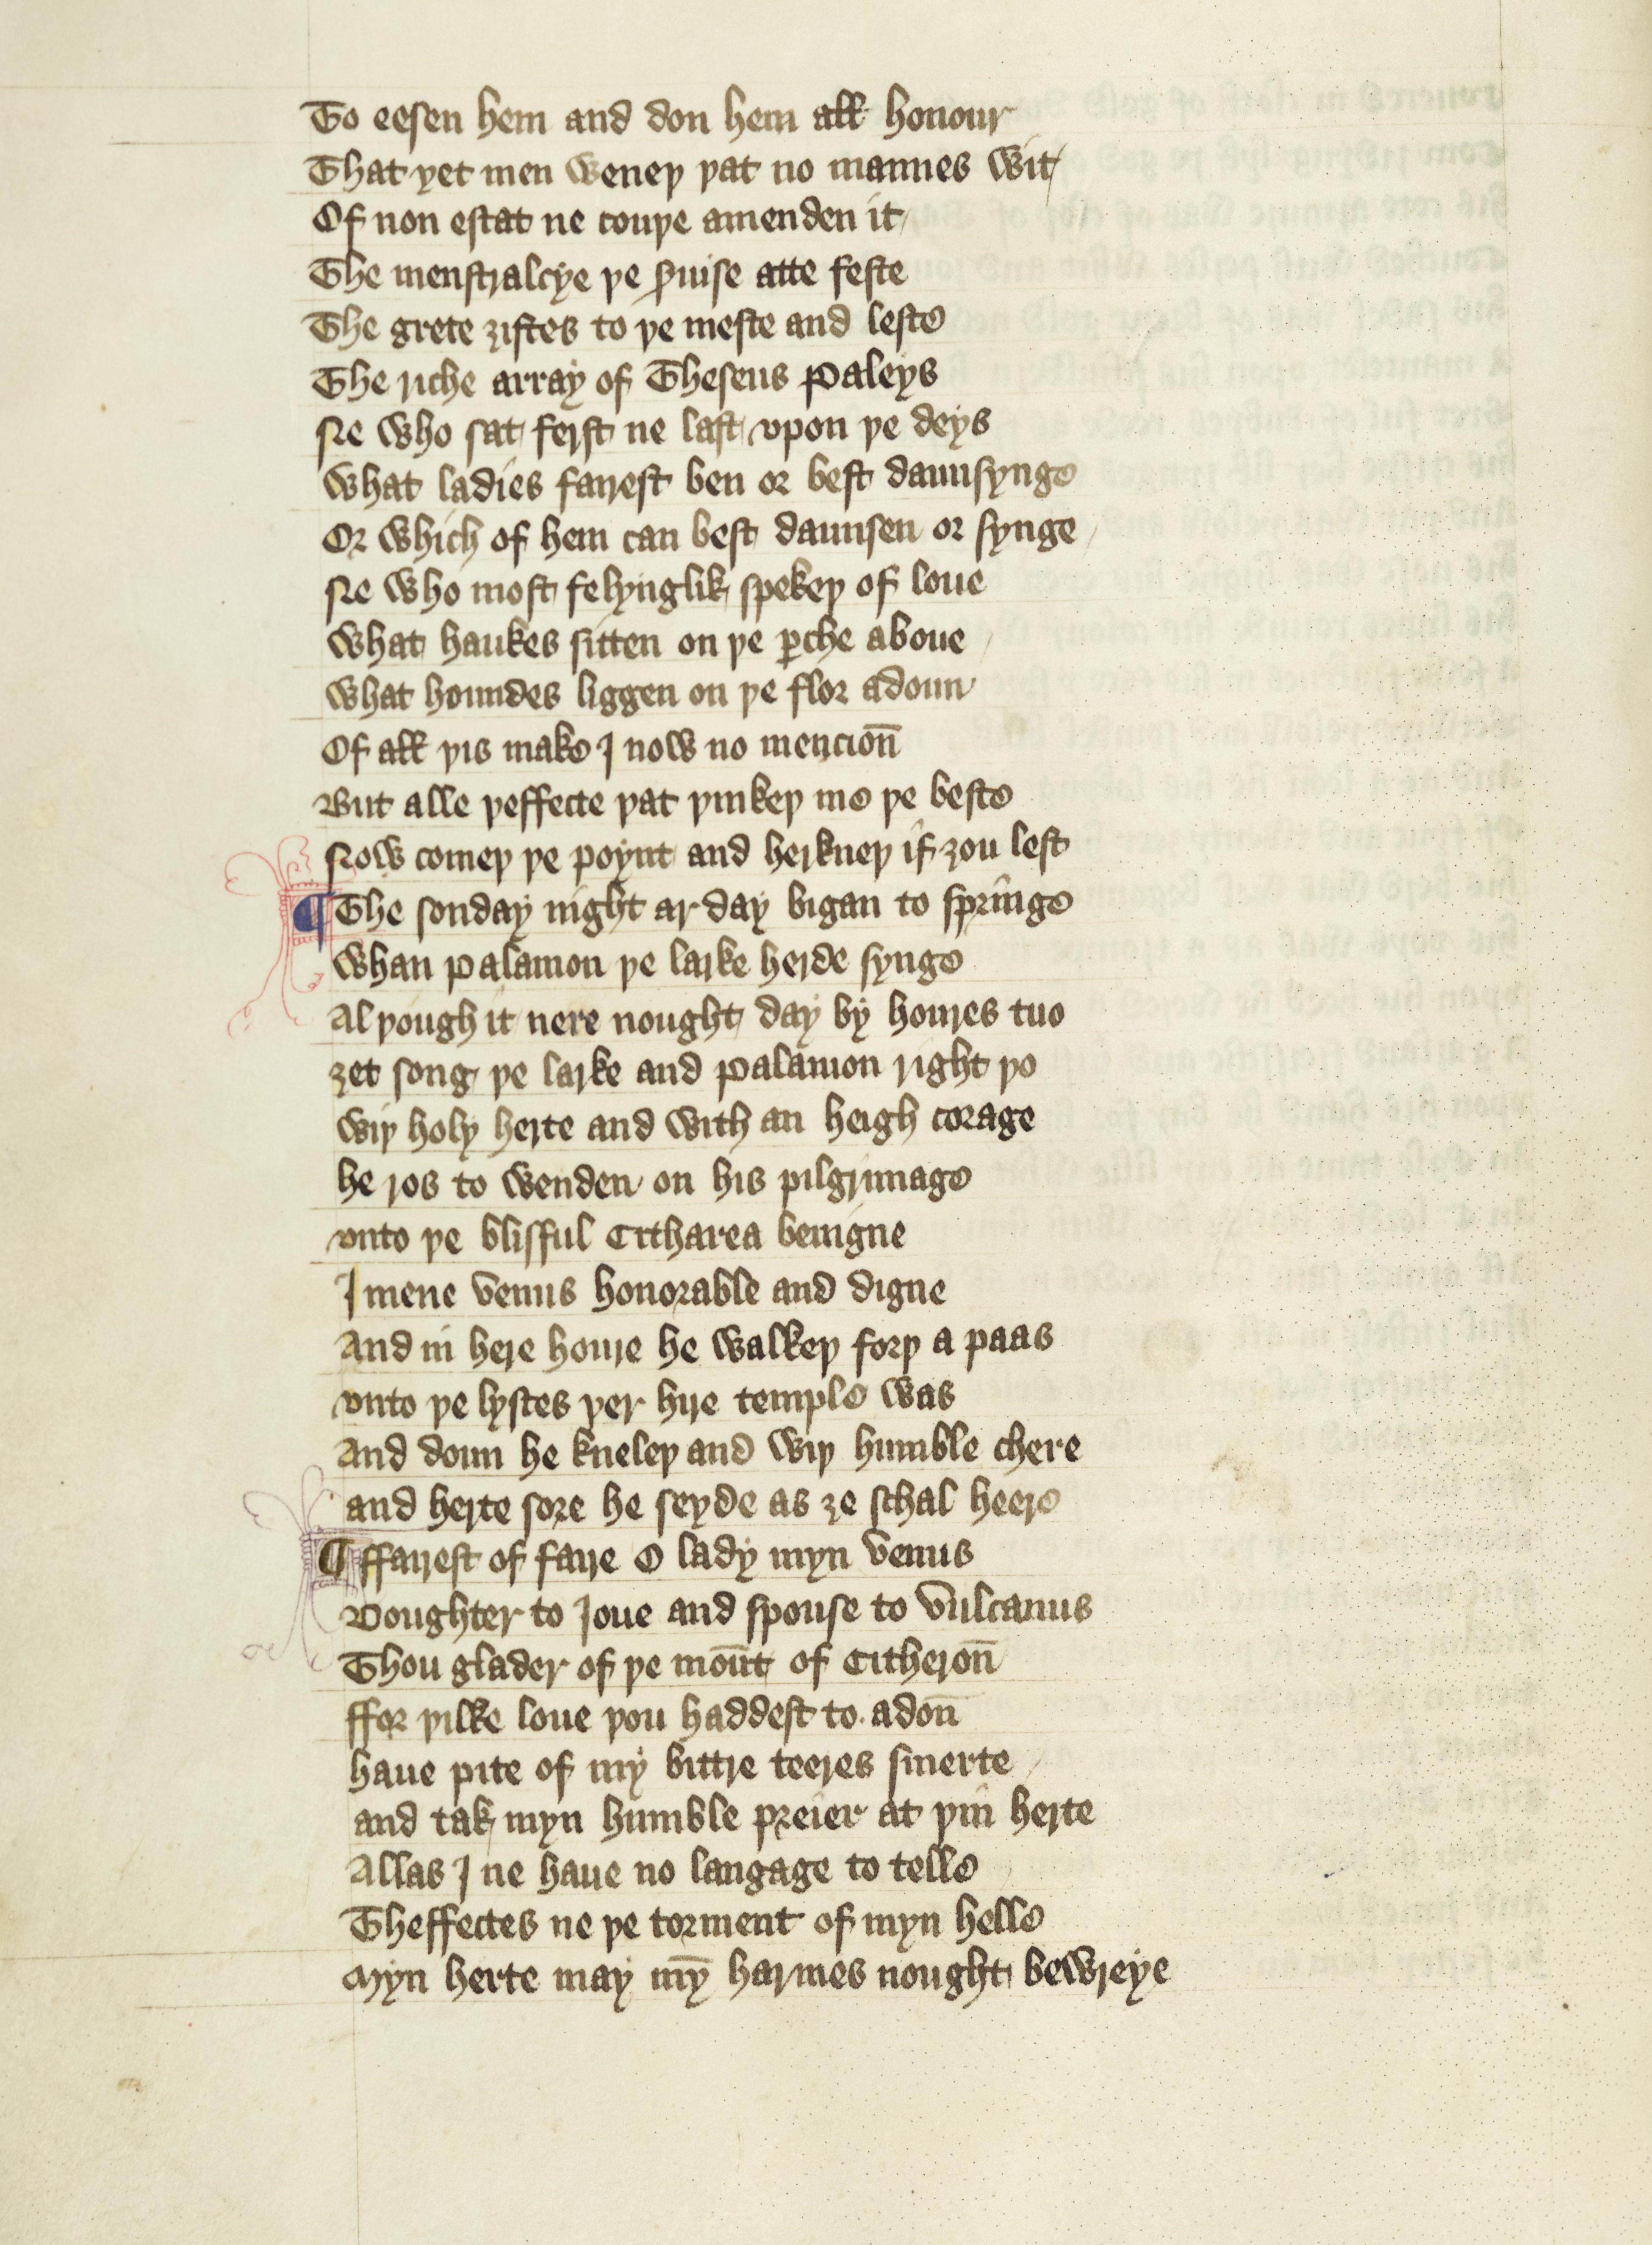 To eesen hem and don hem all honour
That yet men weneþ þat no mannes wit
Of non estat ne couþe amenden it
The menstralcye þe seruise atte feste
The grete ȝiftes to þe meste and leste
The riche array of Theseus paleys
Ne who sat ferst ne last vpon þe deys
What ladies fairest ben or best daunsynge
Or which of hem can best daunsen or synge
Ne who most felynglik spekeþ of loue
What haukes sitten on þe perche aboue
What houndes liggen on þe flor adoun
Of all þis make I now no mencion̄
But alle þeffecte þat þinkeþ me þe beste
Now comeþ þe poynt and herkneþ if ȝou lest
¶ The sonday night ar day bigan to springe
Whan palamon þe larke herde synge
Al þough it nere nought day by houres tuo
ȝet song þe larke and palamon right þo
Wiþ holy herte and with an heigh corage
he ros to wenden on his pilgrimage
vnto þe blisful Citharea benigne
I mene venus honorable and digne
And in here houre he walkeþ forþ a paas
vnto þe lystes þer hire temple was
And doun he kneleþ and wiþ humble chere
and herte sore he seyde as ȝe schal heere
¶ ffairest of faire O lady myn venus
Doughter to Ioue and spouse to vulcanus
Thou glader of þe mou̅t of Citheron̄
ffor þilke loue þou haddest to adon̄
haue pite of my bittre teeres smerte
and tak myn humble preier at þin herte
Allas I ne haue no langage to telle
Theffectes ne þe torment of myn helle
Myn herte may my̅ harmes nought bewreye